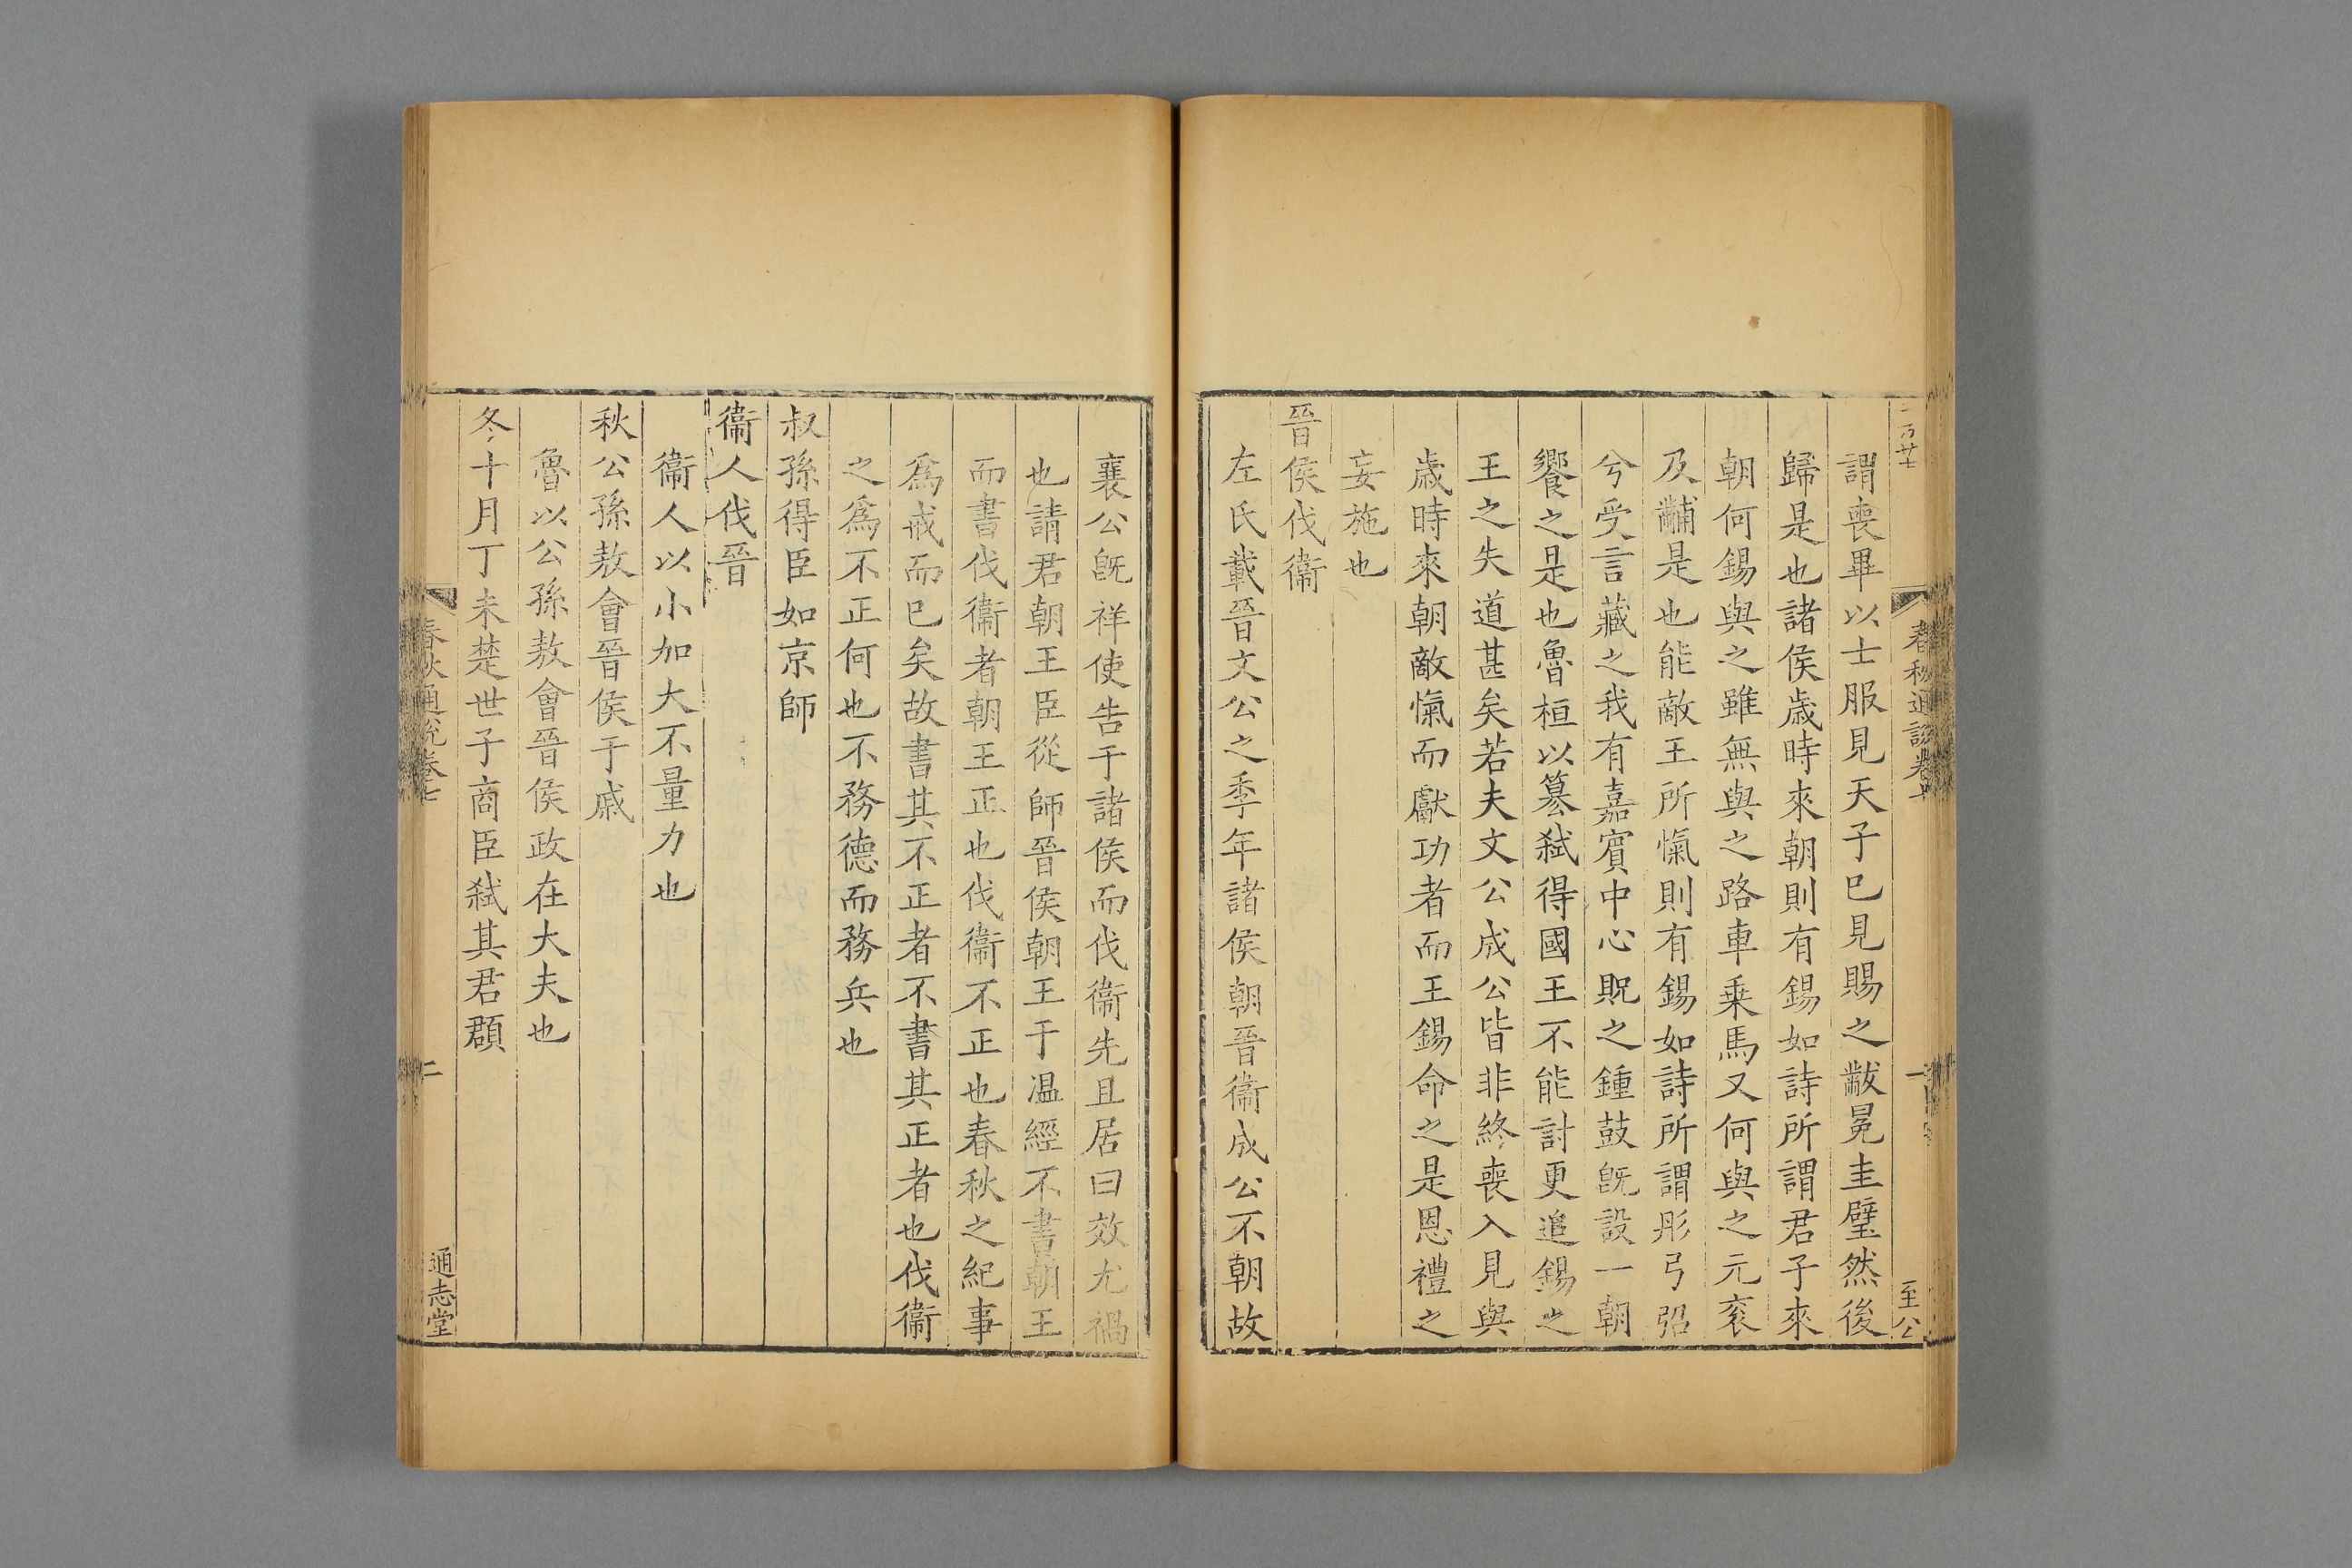 謂喪畢以士服見天子已見賜之黻冕圭璧然後
歸是也諸侯歲時來朝則有錫如詩所謂君子來
朝何錫與之雖無與之路車乗馬又何與之元衮
及黼是也能敵王所愾則有錫如詩所謂彤弓弨
兮受言藏之我有嘉賔中心貺之鍾鼓旣設一朝
饗之是也魯桓以篡弑得國王不能討更追錫之
王之失道甚矣若夫文公成公皆非終喪入見與
歲時來朝敵愾而獻功者而王錫命之是恩禮之
妄施也
晉侯伐衞
左氏載晉文公之季年諸侯朝晉衞成公不朝故
襄公旣祥使告于諸侯而伐衞先且居曰效尤禍
也請君朝王臣從師晉侯朝王于温經不書朝王
而書伐衞者朝王正也伐衞不正也春秋之紀事
爲戒而已矣故書其不正者不書其正者也伐衞
之爲不正何也不務德而務兵也
叔孫得臣如京師
衞人伐晉
衞人以小加大不量力也
秋公孫敖會晉侯于戚
魯以公孫敖會晉侯政在大夫也
冬十月丁未楚世子商臣弑其君頵
春秋通說卷七
二
通志堂